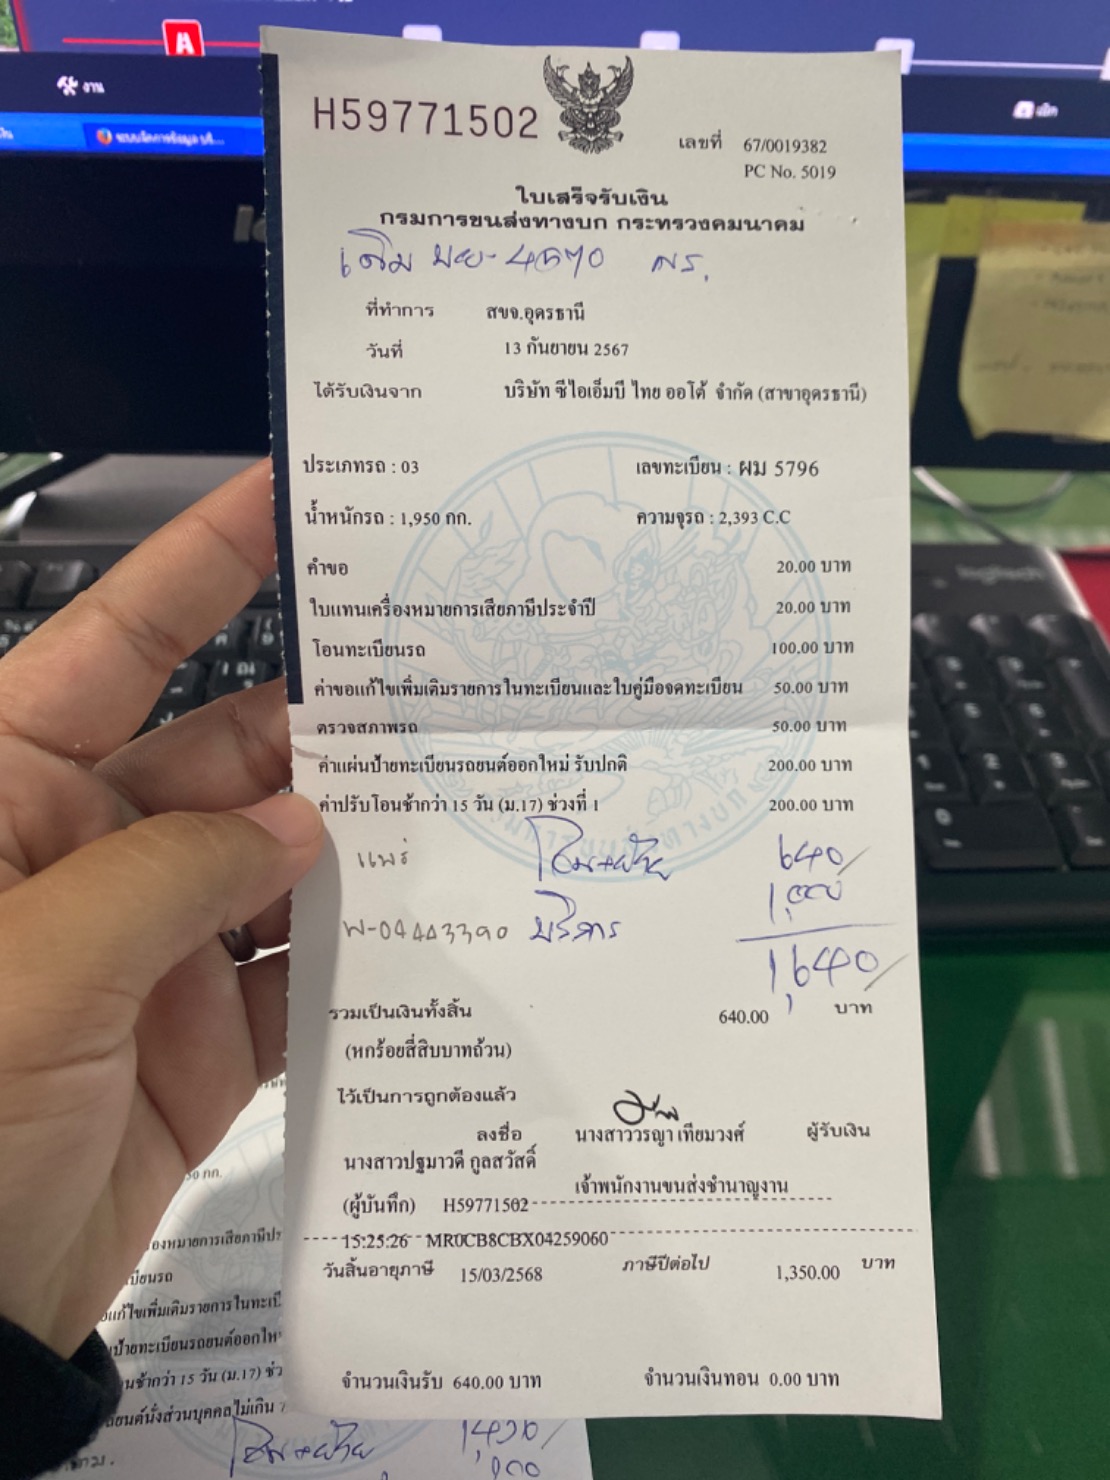 งาน
H59771502
เลขที่ 67/0019382
PC No. 5019
ใบเสร็จรับเงิน
กรมการขนส่งทางบก กระทรวงคมนาคม
เดิม
ที่ทำการ สขจ.อุดรธานี
วันที่ 13 กันยายน 2567
ได้รับเงินจาก บริษัท ซีไอเอ็มบี ไทย ออโต้ จำกัด (สาขาอุดรธานี)
ประเภทรถ : 03 เลขทะเบียน : ผม 5796
น้ำหนักรถ : 1,950 กก. ความจุรถ : 2,393 C.C
คำขอ 20.00 บาท
ใบแทนเครื่องหมายการเสียภาษีประจำปี 20.00 บาท
โอนทะเบียนรถ 100.00 บาท
ค่าขอแก้ไขเพิ่มเติมรายการในทะเบียนและใบคู่มือจดทะเบียน 50.00 บาท
ตรวจสภาพรถ 50.00 บาท
ค่าแผ่นป้ายทะเบียนรถยนต์ออกใหม่ รับปกติ 200.00 บาท
ค่าปรับโอนช้ากว่า 15 วัน (ม.17) ช่วงที่ 1 200.00 บาท
แพร่ โอน+ย้าย 640/
1,000
W-04443390 บริการ
1,640/
รวมเป็นเงินทั้งสิ้น 640.00 บาท
(หกร้อยสี่สิบบาทถ้วน)
ไว้เป็นการถูกต้องแล้ว
ลงชื่อ นางสาววรญา เทียมวงศ์ ผู้รับเงิน
นางสาวปฐมาวดี กูลสวัสดิ์
เจ้าพนักงานขนส่งชำนาญงาน
(ผู้บันทึก) H59771502
15:25:26 MR0CB8CBX04259060
วันสิ้นอายุภาษี 15/03/2568 ภาษีปีต่อไป 1,350.00 บาท
จำนวนเงินรับ 640.00 บาท จำนวนเงินทอน 0.00 บาท
logitech